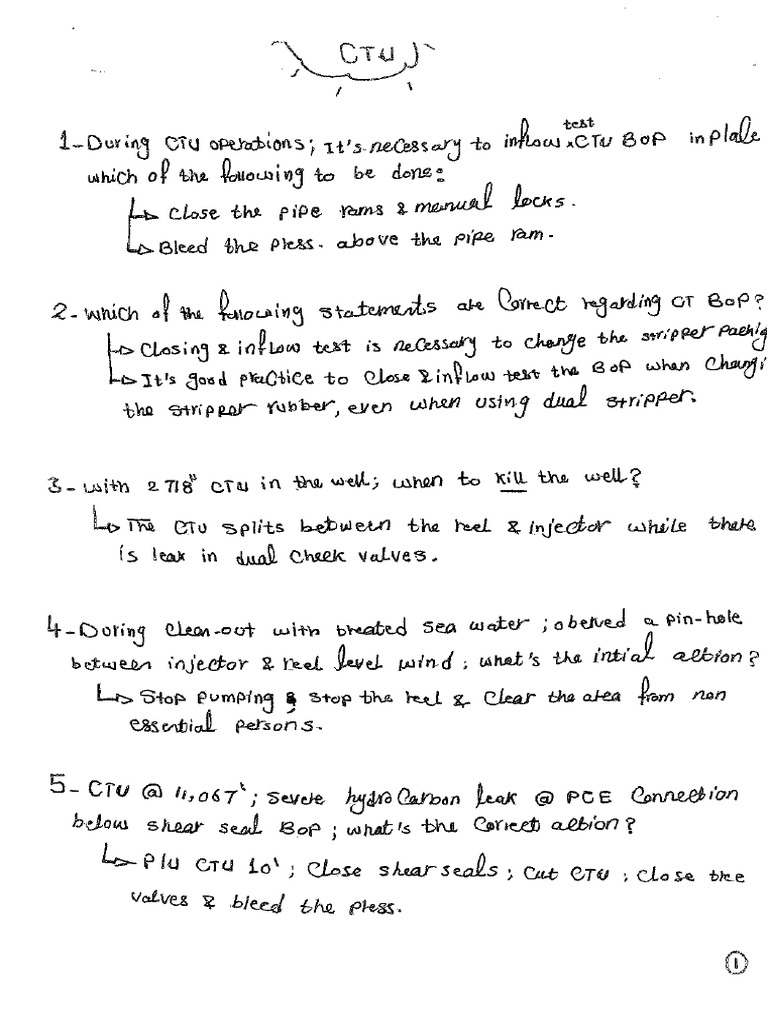 CTU
1- During CTU operations; It's necessary to inflow test CTU BOP in place
which of the following to be done:
↳ Close the pipe rams & manual locks.
↳ Bleed the press. above the pipe ram.
2- which of the following statements are Correct regarding CT BOP?
↳ Closing & inflow test is necessary to change the stripper packig
↳ It's good practice to close & inflow test the BOP when changi
the stripper rubber, even when using dual stripper.
3- with 2 7/8" CTU in the well; when to kill the well?
↳ The CTU splits between the reel & injector while there
is leak in dual check valves.
4- During clean-out with treated sea water; oberved a pin-hole
between injector & reel level wind; what's the intial action?
↳ Stop pumping & stop the reel & clear the area from non
essential persons.
5- CTU @ 11,067'; severe hydro Carbon leak @ PCE Connection
below shear seal BOP; what's the correct action?
↳ P/U CTU 10'; Close shear seals; Cut CTU; Close tree
valves & bleed the press.
1